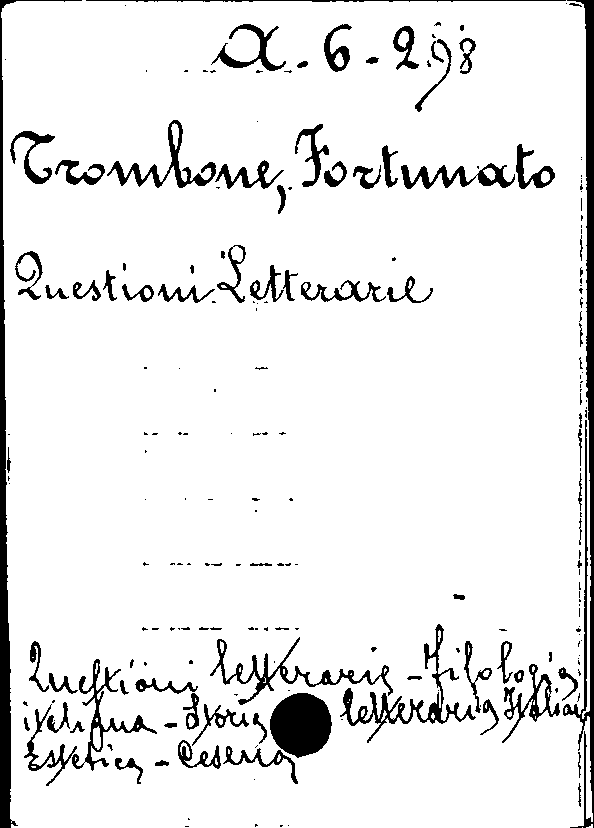 A. - 6 - 298
Trombone, Fortunato
Questioni Letterarie
Questioni letterarie - Filologia
italiana - Storia letteraria Italiana
Estetica - Cesena